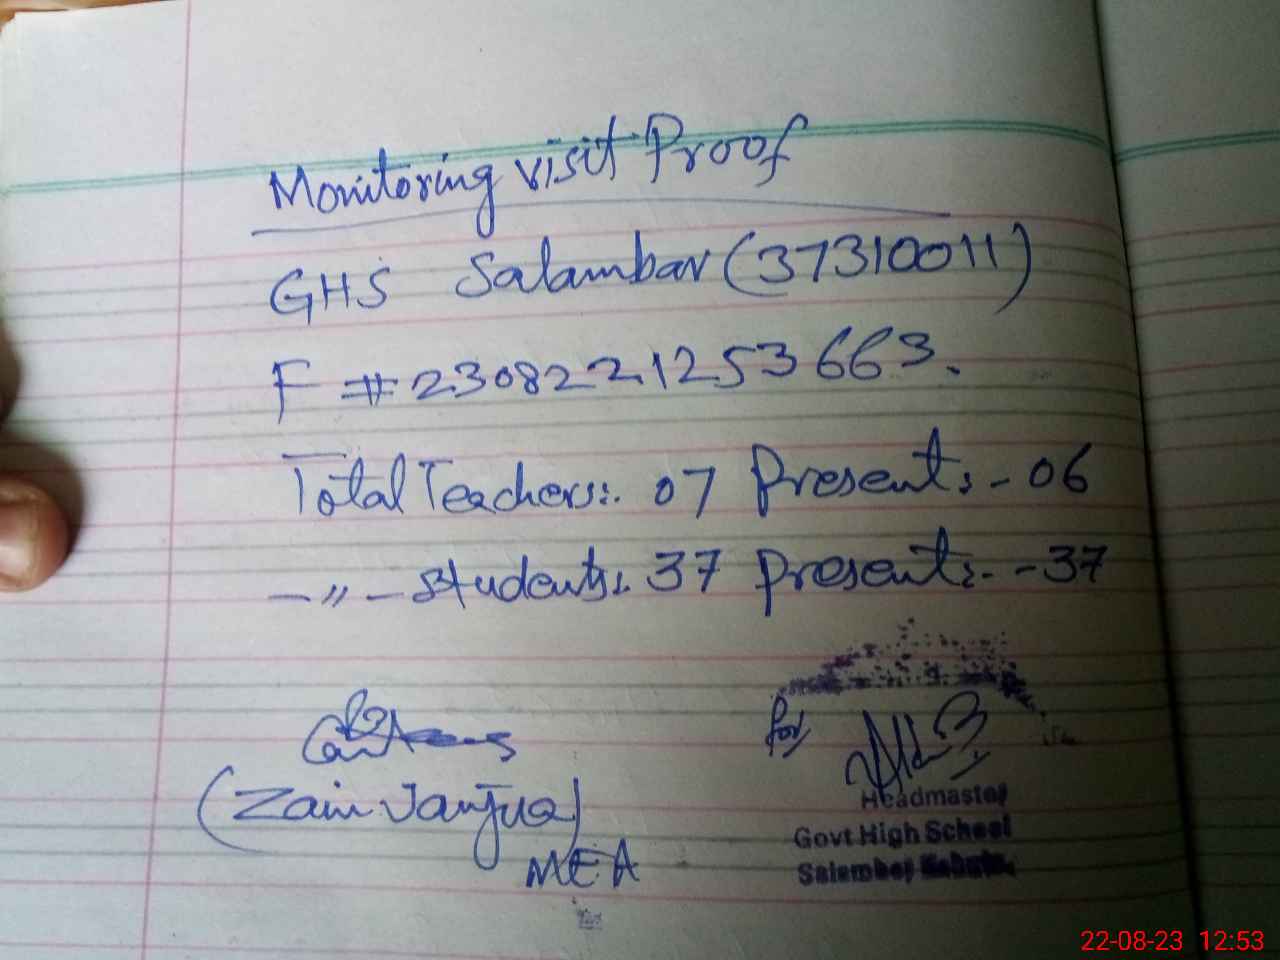 Monitoring visit Proof
GHS Salambar (37310011)
F # 2308221253663.
Total Teachers:. 07 Present:- 06
-〃- students:. 37 Present:- -37
for
(Zain Janjua)
MEA
Headmaster
Govt High School
22-08-23 12:53